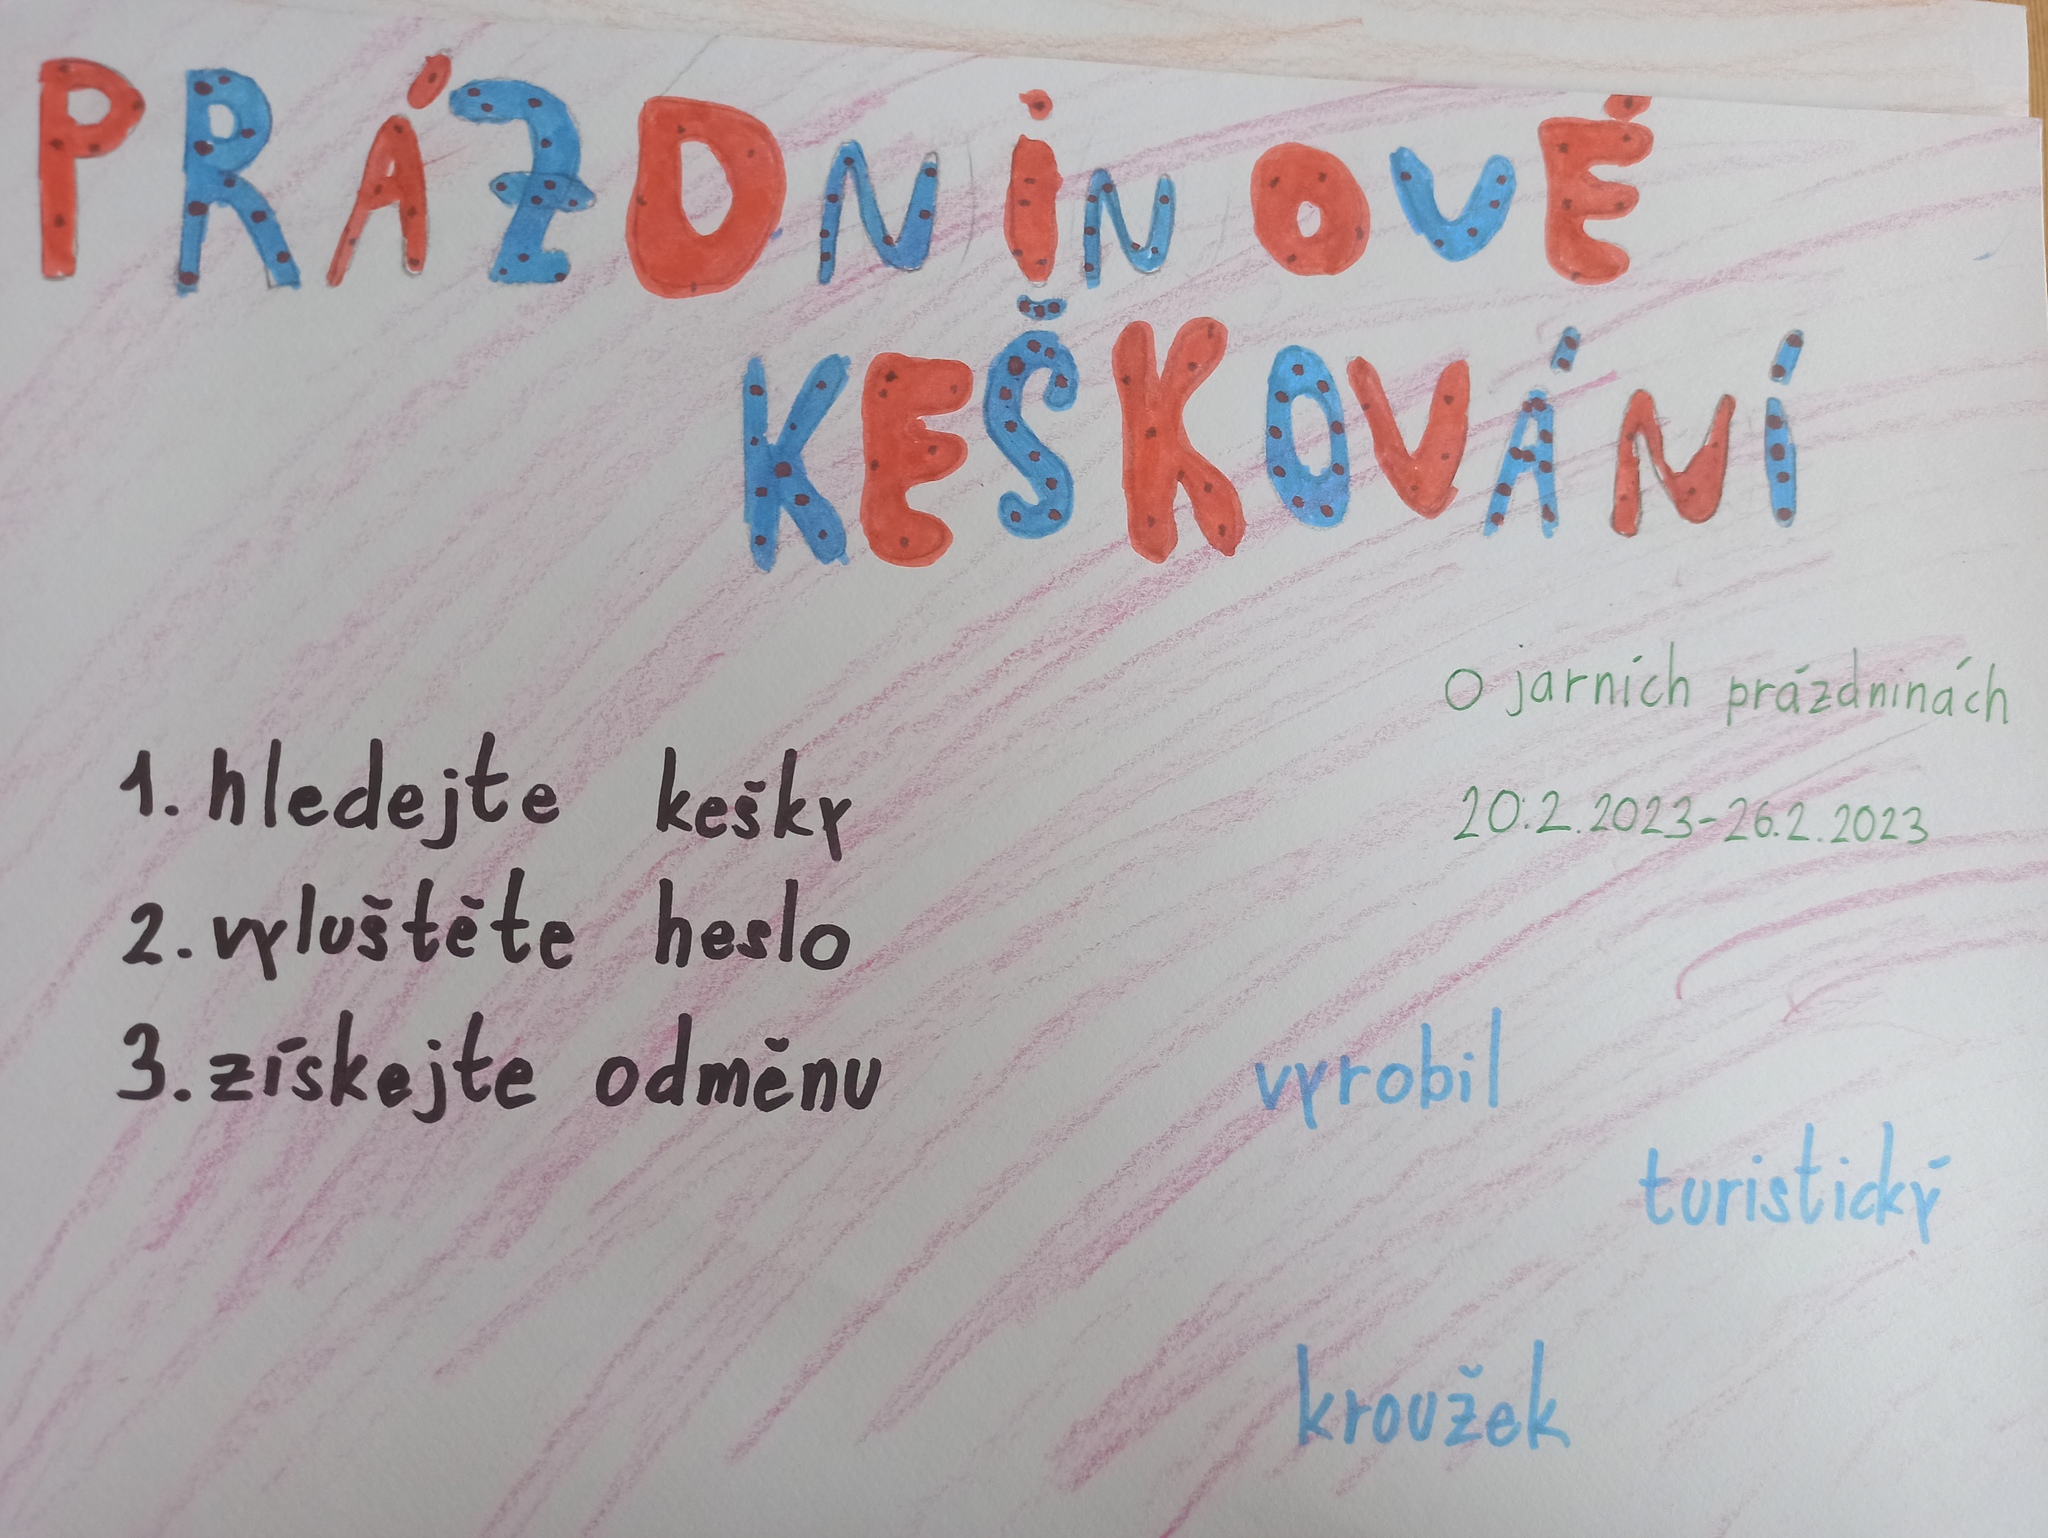 PRÁZDNINOVÉ
KEŠKOVÁNÍ
O jarních prázdninách
20.2.2023-26.2.2023
1. hledejte kešky
2. vyluštěte heslo
3. získejte odměnu
vyrobil
turistický
kroužek